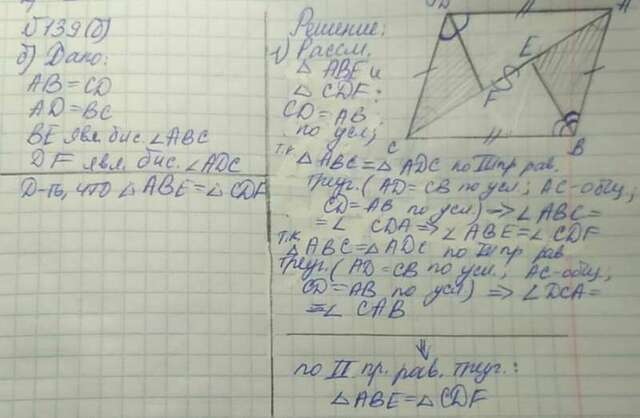 №139(б)
б) Дано:
AB = CD
AD = BC
BE явл. бис. ∠ABC
DF явл. бис. ∠ADC
Д-ть, что △ABE = △CDF
Решение:
1) Рассм.
△ ABE и
△ CDF:
CD = AB
по усл;
т.к
△ ABC = △ ADC по III пр. рав.
треуг. (AD = CB по усл; AC - общ,
CD = AB по усл) => ∠ABC =
= ∠ CDA => ∠ABE = ∠ CDF
т.к
△ ABC = △ ADC по III пр. рав.
треуг. (AD = CB по усл; AC - общ,
CD = AB по усл) => ∠DCA =
= ∠ CAB
по II пр. рав. треуг.:
△ABE = △CDF
D
A
E
F
C
B